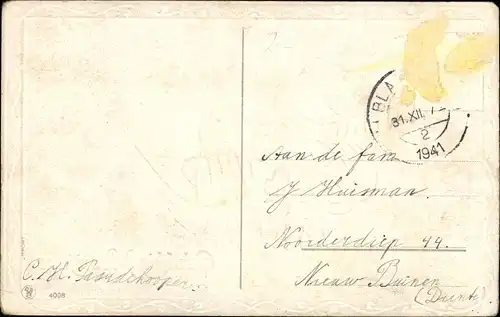 2-
BLA
31.XII.
2
1941
Aan de fam
J Huisman.
Noorderdiep 44.
Nieuw Buinen
(Drenthe)
C. M.
4098